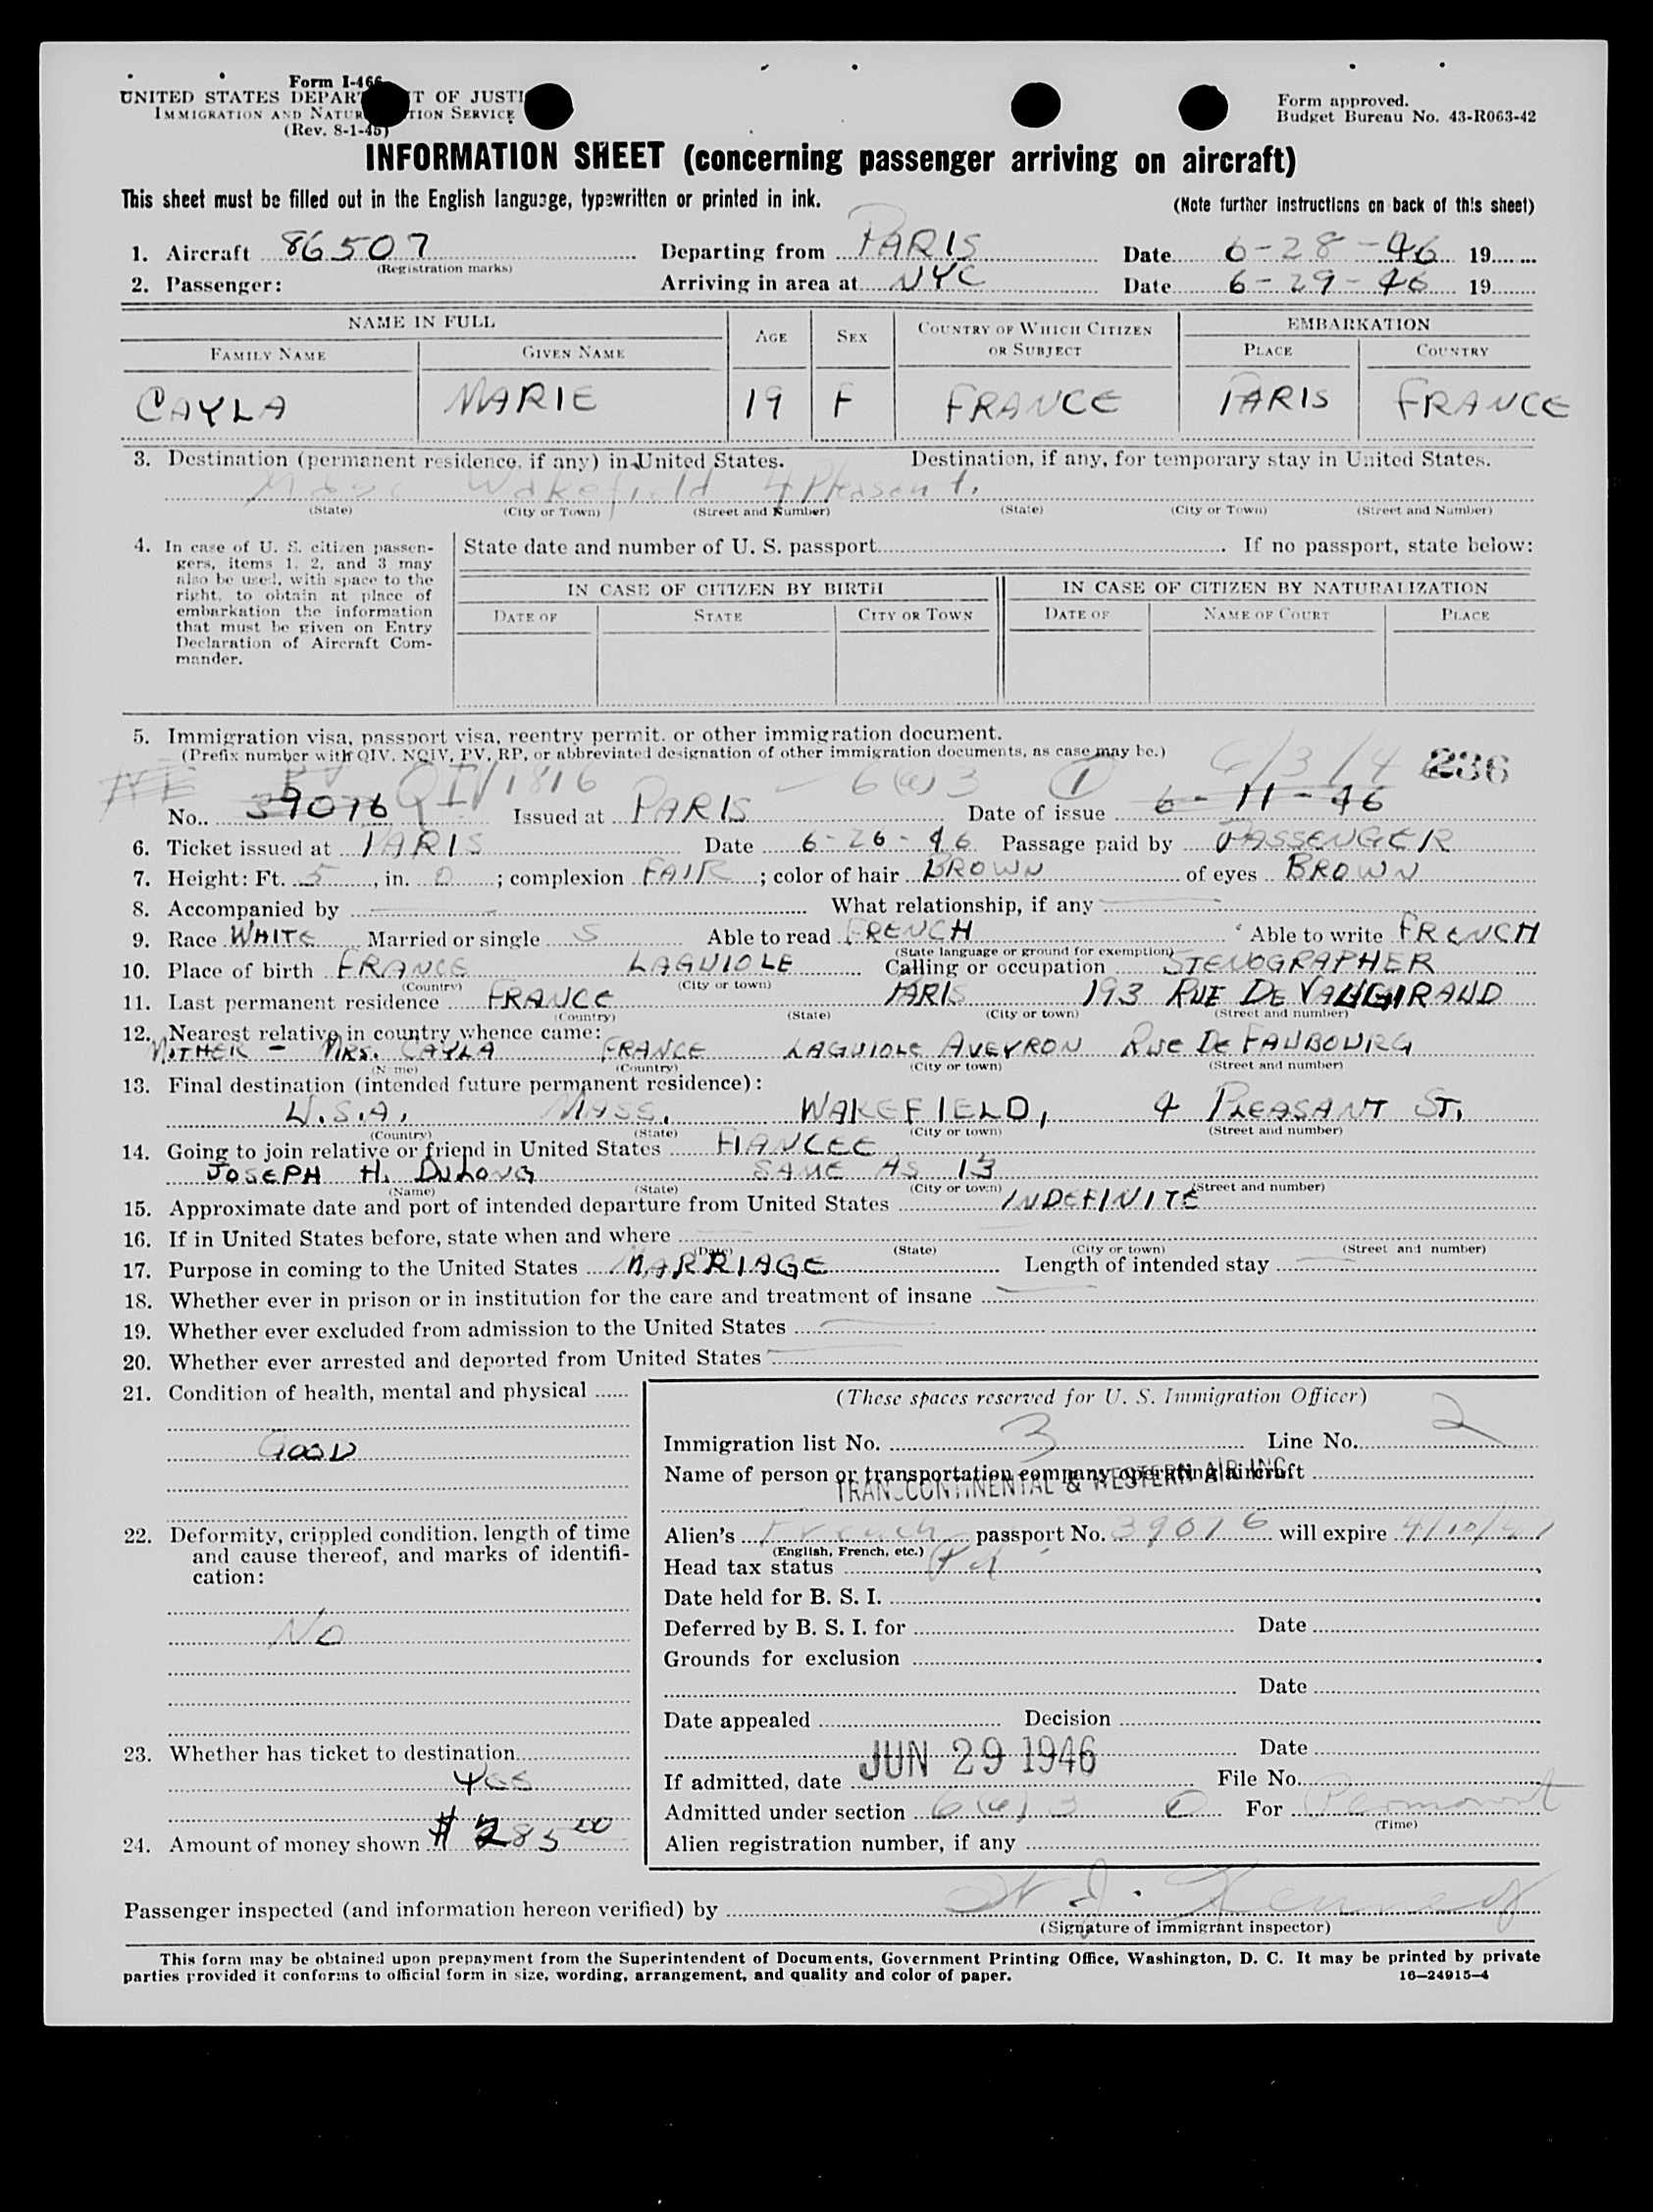 Form I-466
UNITED STATES DEPARTMENT OF JUSTICE
IMMIGRATION AND NATURALIZATION SERVICE
(Rev. 8-1-45)
Form approved.
Budget Bureau No. 43-R063-42
INFORMATION SHEET (concerning passenger arriving on aircraft)
This sheet must be filled out in the English language, typewritten or printed in ink.
(Note further instructions on back of this sheet)
1. Aircraft 86507 Departing from PARIS Date 6-28-46 19
(Registration marks)
2. Passenger: Arriving in area at NYC Date 6-29-46 19
NAME IN FULL AGE SEX COUNTRY OF WHICH CITIZEN OR SUBJECT EMBARKATION
FAMILY NAME GIVEN NAME PLACE COUNTRY
CAYLA MARIE 19 F FRANCE PARIS FRANCE
3. Destination (permanent residence, if any) in United States. Destination, if any, for temporary stay in United States.
Mass Wakefield 4 Pleasant.
(State) (City or Town) (Street and Number) (State) (City or Town) (Street and Number)
4. In case of U. S. citizen passen-
gers, items 1, 2, and 3 may
also be used, with space to the
right, to obtain at place of
embarkation the information
that must be given on Entry
Declaration of Aircraft Com-
mander.
State date and number of U. S. passport If no passport, state below:
IN CASE OF CITIZEN BY BIRTH IN CASE OF CITIZEN BY NATURALIZATION
DATE OF STATE CITY OR TOWN DATE OF NAME OF COURT PLACE
5. Immigration visa, passport visa, reentry permit, or other immigration document.
(Prefix number with QIV, NQIV, PV, RP, or abbreviated designation of other immigration documents, as case may be.)
236
PV QIV 1816 6(a)3 1
No. 39076 Issued at PARIS Date of issue 6-11-46
6. Ticket issued at PARIS Date 6-26-46 Passage paid by PASSENGER
7. Height: Ft. 5, in. 0; complexion FAIR; color of hair BROWN of eyes BROWN
8. Accompanied by — What relationship, if any —
9. Race WHITE Married or single S Able to read FRENCH Able to write FRENCH
(State language or ground for exemption)
10. Place of birth FRANCE LAGUIOLE Calling or occupation STENOGRAPHER
(Country) (City or town)
11. Last permanent residence FRANCE PARIS 193 RUE DE VAUGIRARD
(Country) (State) (City or town) (Street and number)
12. Nearest relative in country whence came:
MOTHER - MRS. CAYLA FRANCE LAGUIOLE AVEYRON RUE DE FAUBOURG
(Name) (Country) (City or town) (Street and number)
13. Final destination (intended future permanent residence):
U.S.A. MASS. WAKEFIELD, 4 PLEASANT ST.
(Country) (State) (City or town) (Street and number)
14. Going to join relative or friend in United States FIANCEE
JOSEPH H. DULONG SAME AS 13
(Name) (State) (City or town) (Street and number)
15. Approximate date and port of intended departure from United States INDEFINITE
16. If in United States before, state when and where —
(Date) (State) (City or town) (Street and number)
17. Purpose in coming to the United States MARRIAGE Length of intended stay —
18. Whether ever in prison or in institution for the care and treatment of insane —
19. Whether ever excluded from admission to the United States —
20. Whether ever arrested and deported from United States —
21. Condition of health, mental and physical
GOOD
22. Deformity, crippled condition, length of time
and cause thereof, and marks of identifi-
cation:
NO
23. Whether has ticket to destination
YES
24. Amount of money shown $ 285 00
(These spaces reserved for U. S. Immigration Officer)
Immigration list No. 3 Line No. 2
Name of person or transportation company operating aircraft
TRANSCONTINENTAL & WESTERN AIR INC.
Alien's French passport No. 39076 will expire
(English, French, etc.)
Head tax status Pd
Date held for B. S. I.
Deferred by B. S. I. for Date
Grounds for exclusion
Date
Date appealed Decision
Date
If admitted, date JUN 29 1946 File No.
Admitted under section 6(a)3 1 For Permanent
(Time)
Alien registration number, if any
Passenger inspected (and information hereon verified) by J. Kennedy
(Signature of immigrant inspector)
This form may be obtained upon prepayment from the Superintendent of Documents, Government Printing Office, Washington, D. C. It may be printed by private
parties provided it conforms to official form in size, wording, arrangement, and quality and color of paper.
16—24915-4